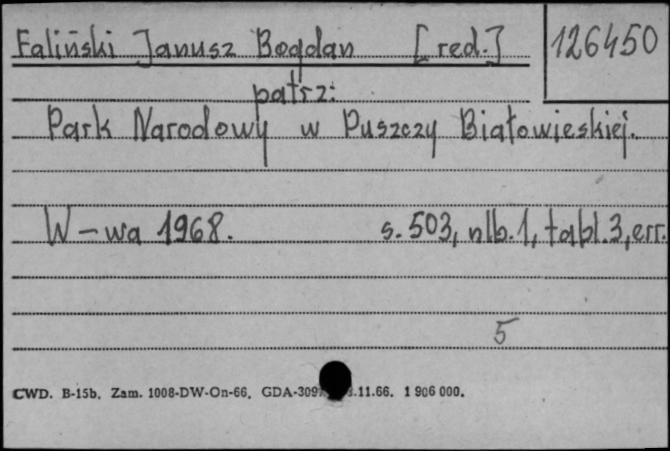 Faliński Janusz Bogdan [red.] 126450
patrz:
Park Narodowy w Puszczy Białowieskiej.
W-wa 1968. s. 503, nlb. 1, tabl. 3, err.
5
CWD. B-15b. Zam. 1008-DW-On-66. .11.66. 1 906 000.